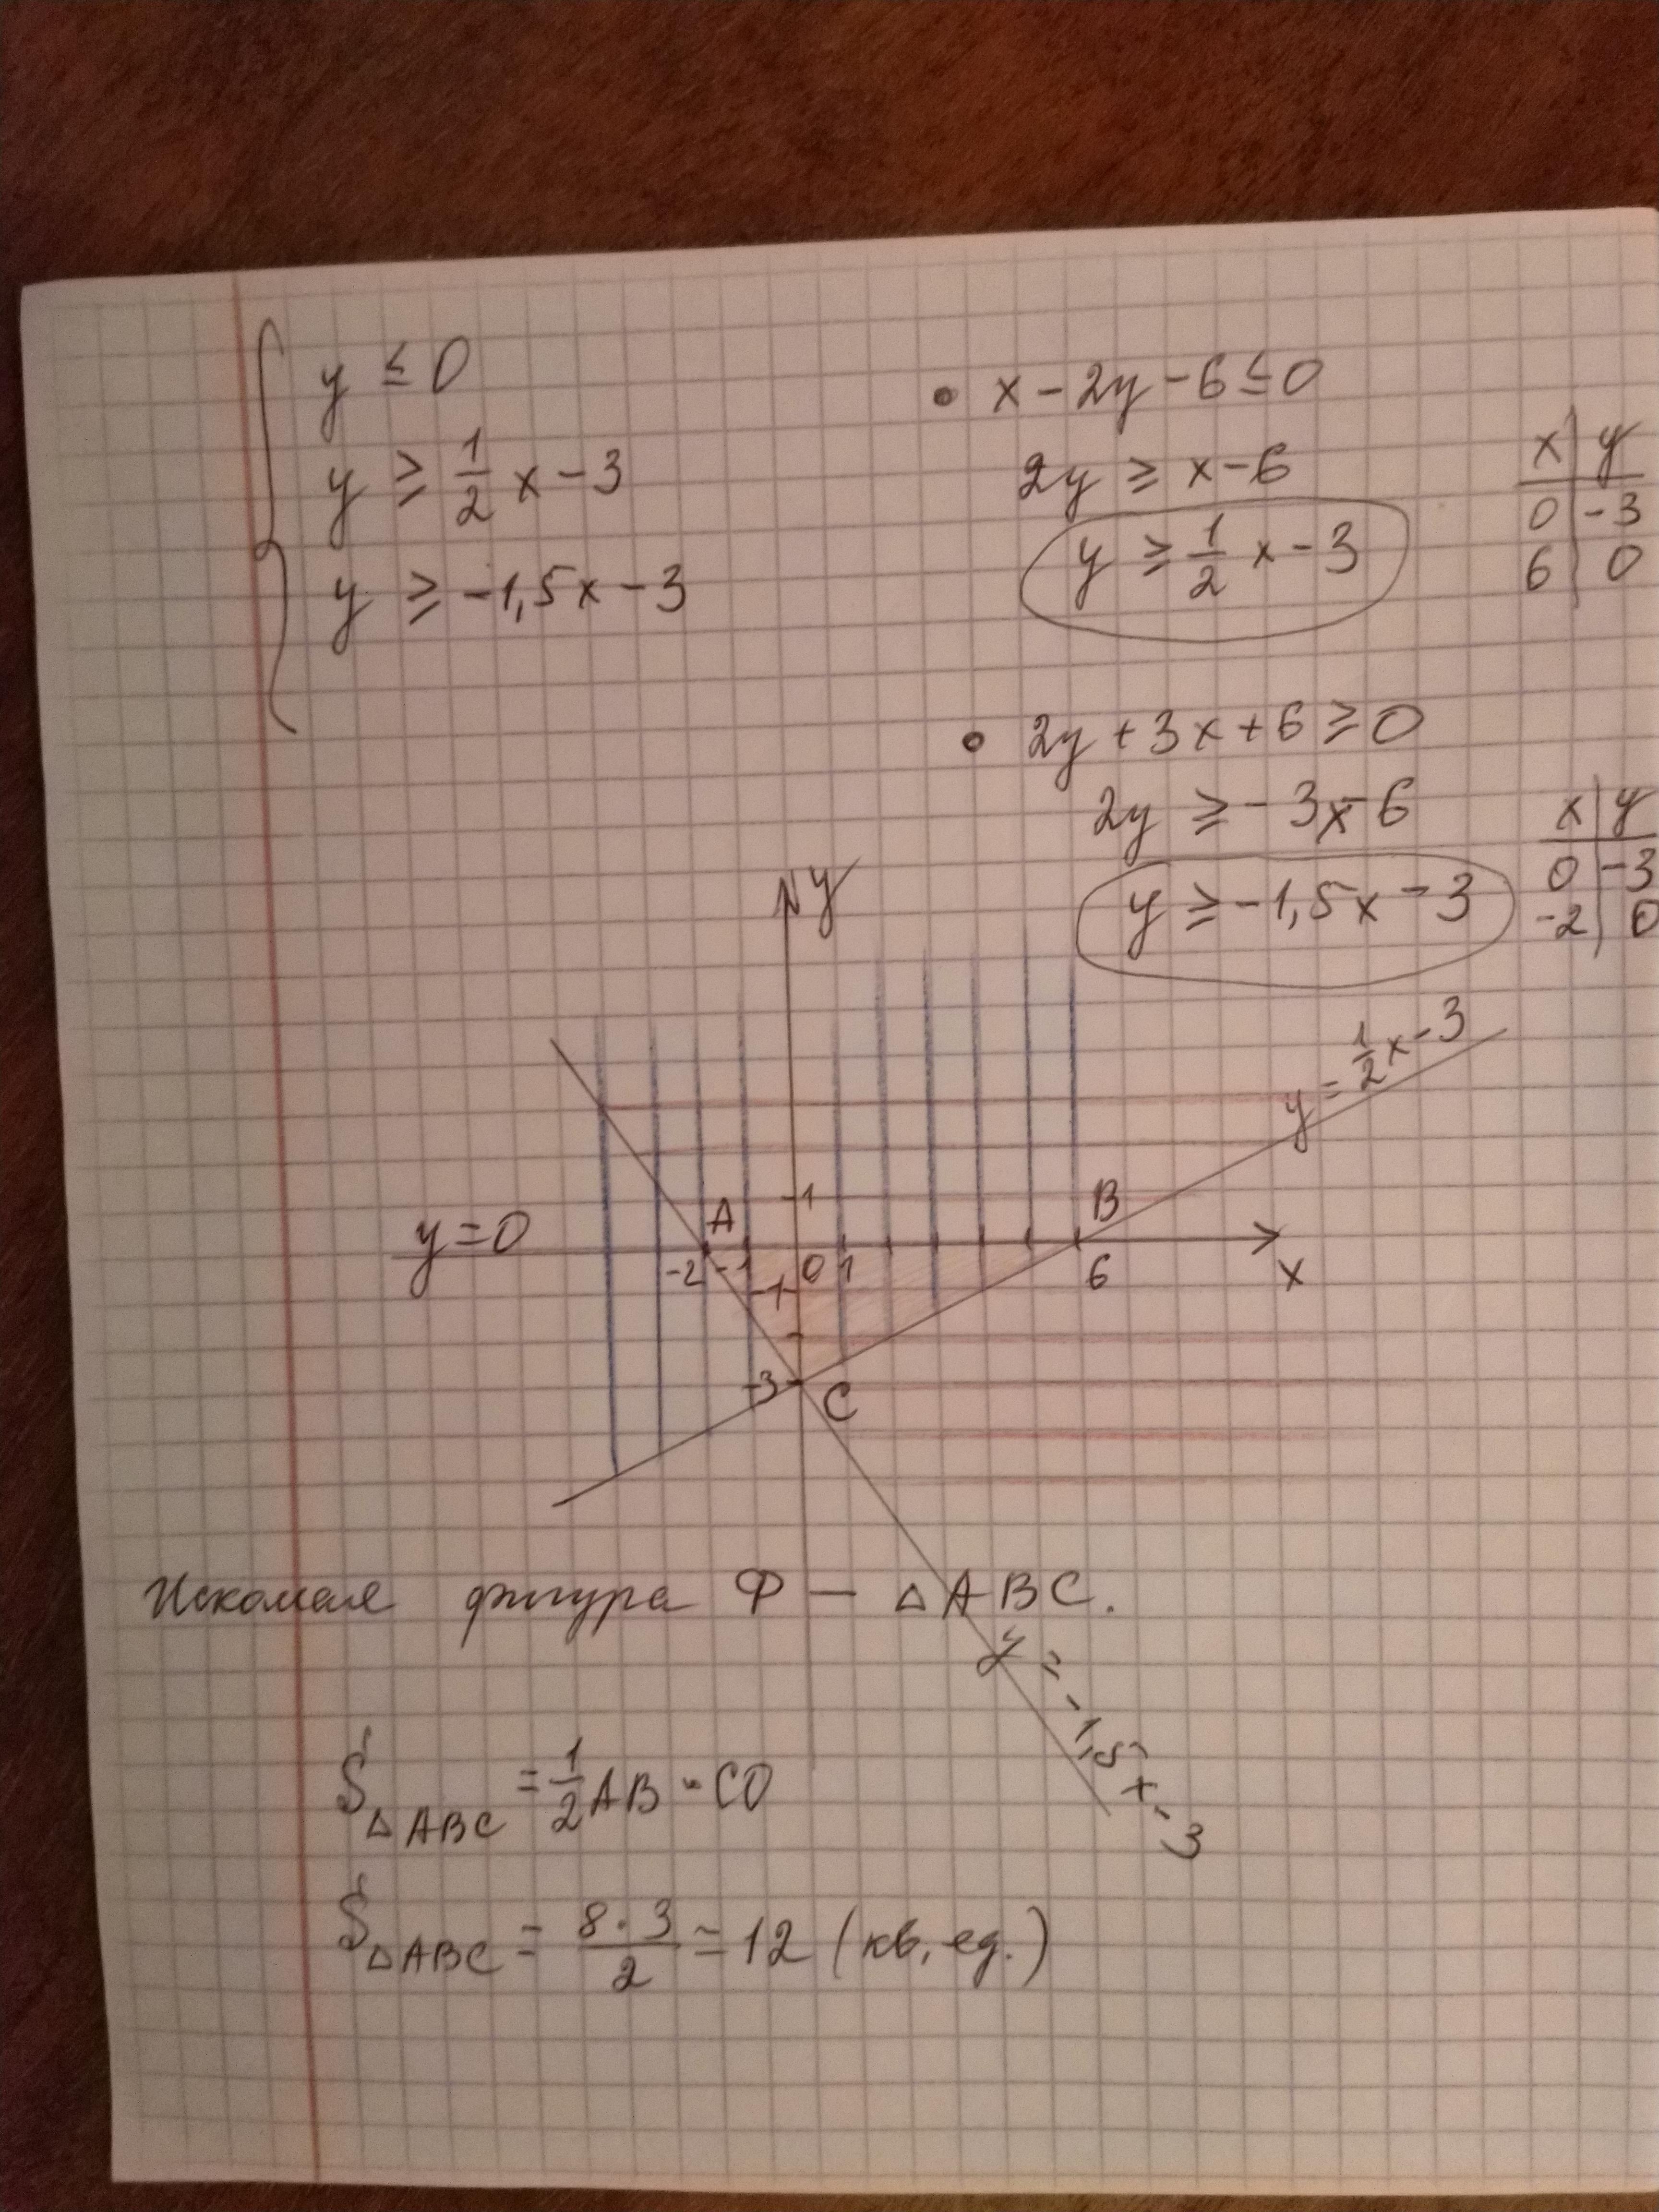 y ≤ 0
y ≥ 1/2 x - 3
y ≥ -1,5x - 3
• x - 2y - 6 ≤ 0
2y ≥ x - 6
y ≥ 1/2 x - 3
x | y
0 | -3
6 | 0
• 2y + 3x + 6 ≥ 0
2y ≥ -3x - 6
y ≥ -1,5x - 3
x | y
0 | -3
-2 | 0
y
y = 1/2 x - 3
1
A
B
y = 0
-2 -1 0 1 6 x
-1
-3
C
Искомая фигура Ф — △ABC.
y = -1,5x - 3
S△ABC = 1/2 AB · CO
S△ABC = 8·3/2 = 12 (кв. ед.)